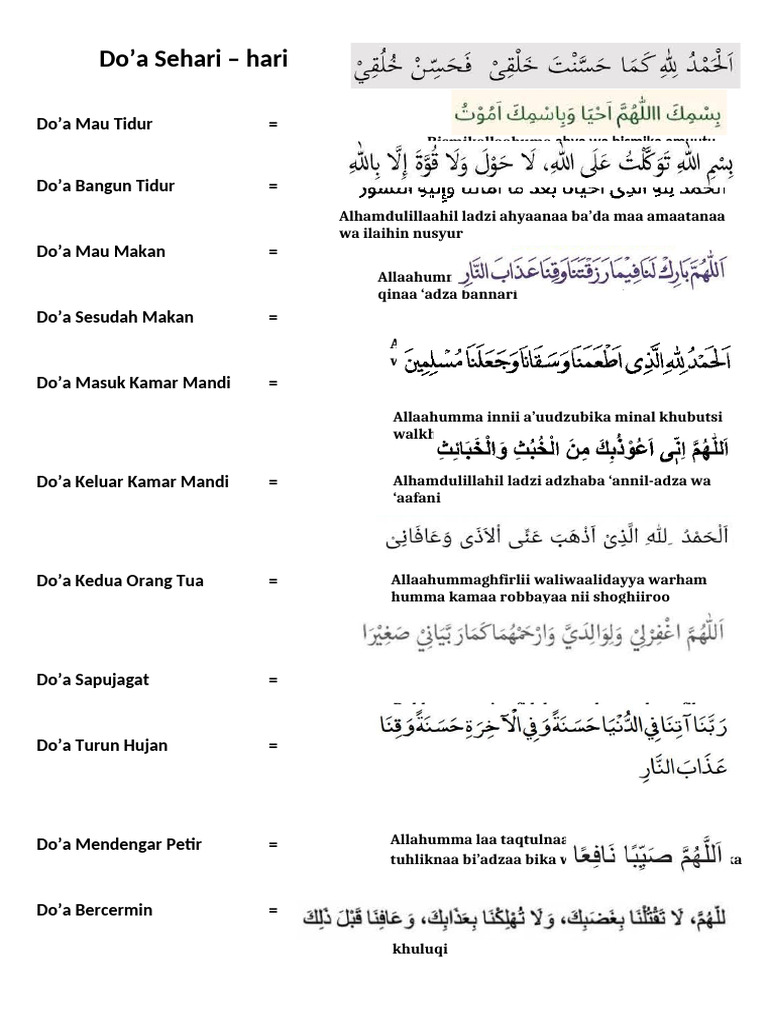 Do’a Sehari – hari
اَلْحَمْدُ لِلّٰهِ كَمَا حَسَّنْتَ خَلْقِيْ فَحَسِّنْ خُلُقِيْ
بِسْمِكَ االلّٰهُمَّ اَحْيَا وَبِاسْمِكَ اَمُوْتُ
Do’a Mau Tidur =
بِسْمِ اللّٰهِ تَوَكَّلْتُ عَلَى اللّٰهِ، لَا حَوْلَ وَلَا قُوَّةَ إِلَّا بِاللّٰهِ
Do’a Bangun Tidur =
Alhamdulillaahil ladzi ahyaanaa ba’da maa amaatanaa
wa ilaihin nusyur
Do’a Mau Makan =
اَللّٰهُمَّ بَارِكْ لَنَا فِيمَا رَزَقْتَنَا وَقِنَا عَذَابَ النَّارِ
qinaa ‘adza bannari
Do’a Sesudah Makan =
اَلْحَمْدُ لِلّٰهِ الَّذِى اَطْعَمَنَا وَسَقَانَا وَجَعَلَنَا مُسْلِمِينَ
Do’a Masuk Kamar Mandi =
Allaahumma innii a’uudzubika minal khubutsi
اَللّٰهُمَّ اِنِّى اَعُوْذُبِكَ مِنَ الْخُبُثِ وَالْخَبَائِثِ
Do’a Keluar Kamar Mandi =
Alhamdulillahil ladzi adzhaba ‘annil-adza wa
‘aafani
اَلْحَمْدُ ِللهِ الَّذِىْ اَذْهَبَ عَنِّى اْلاَذَى وَعَافَانِىْ
Do’a Kedua Orang Tua =
Allaahummaghfirlii waliwaalidayya warham
humma kamaa robbayaa nii shoghiiroo
اَللّٰهُمَّ اغْفِرْلِيْ وَلِوَالِدَيَّ وَارْحَمْهُمَا كَمَا رَبَّيَانِيْ صَغِيْرَا
Do’a Sapujagat =
رَبَّنَا آتِنَا فِي الدُّنْيَا حَسَنَةً وَفِي الْآخِرَةِ حَسَنَةً وَقِنَا
عَذَابَ النَّارِ
Do’a Turun Hujan =
Do’a Mendengar Petir =
Allahumma laa taqtulnaa
tuhliknaa bi’adzaa bika
اَللَّهُمَّ صَيِّبًا نَافِعًا
Do’a Bercermin =
للّٰهُمَّ، لَا تَقْتُلْنَا بِغَضَبِكَ، وَلَا تُهْلِكْنَا بِعَذَابِكَ، وَعَافِنَا قَبْلَ ذَلِكَ
khuluqi